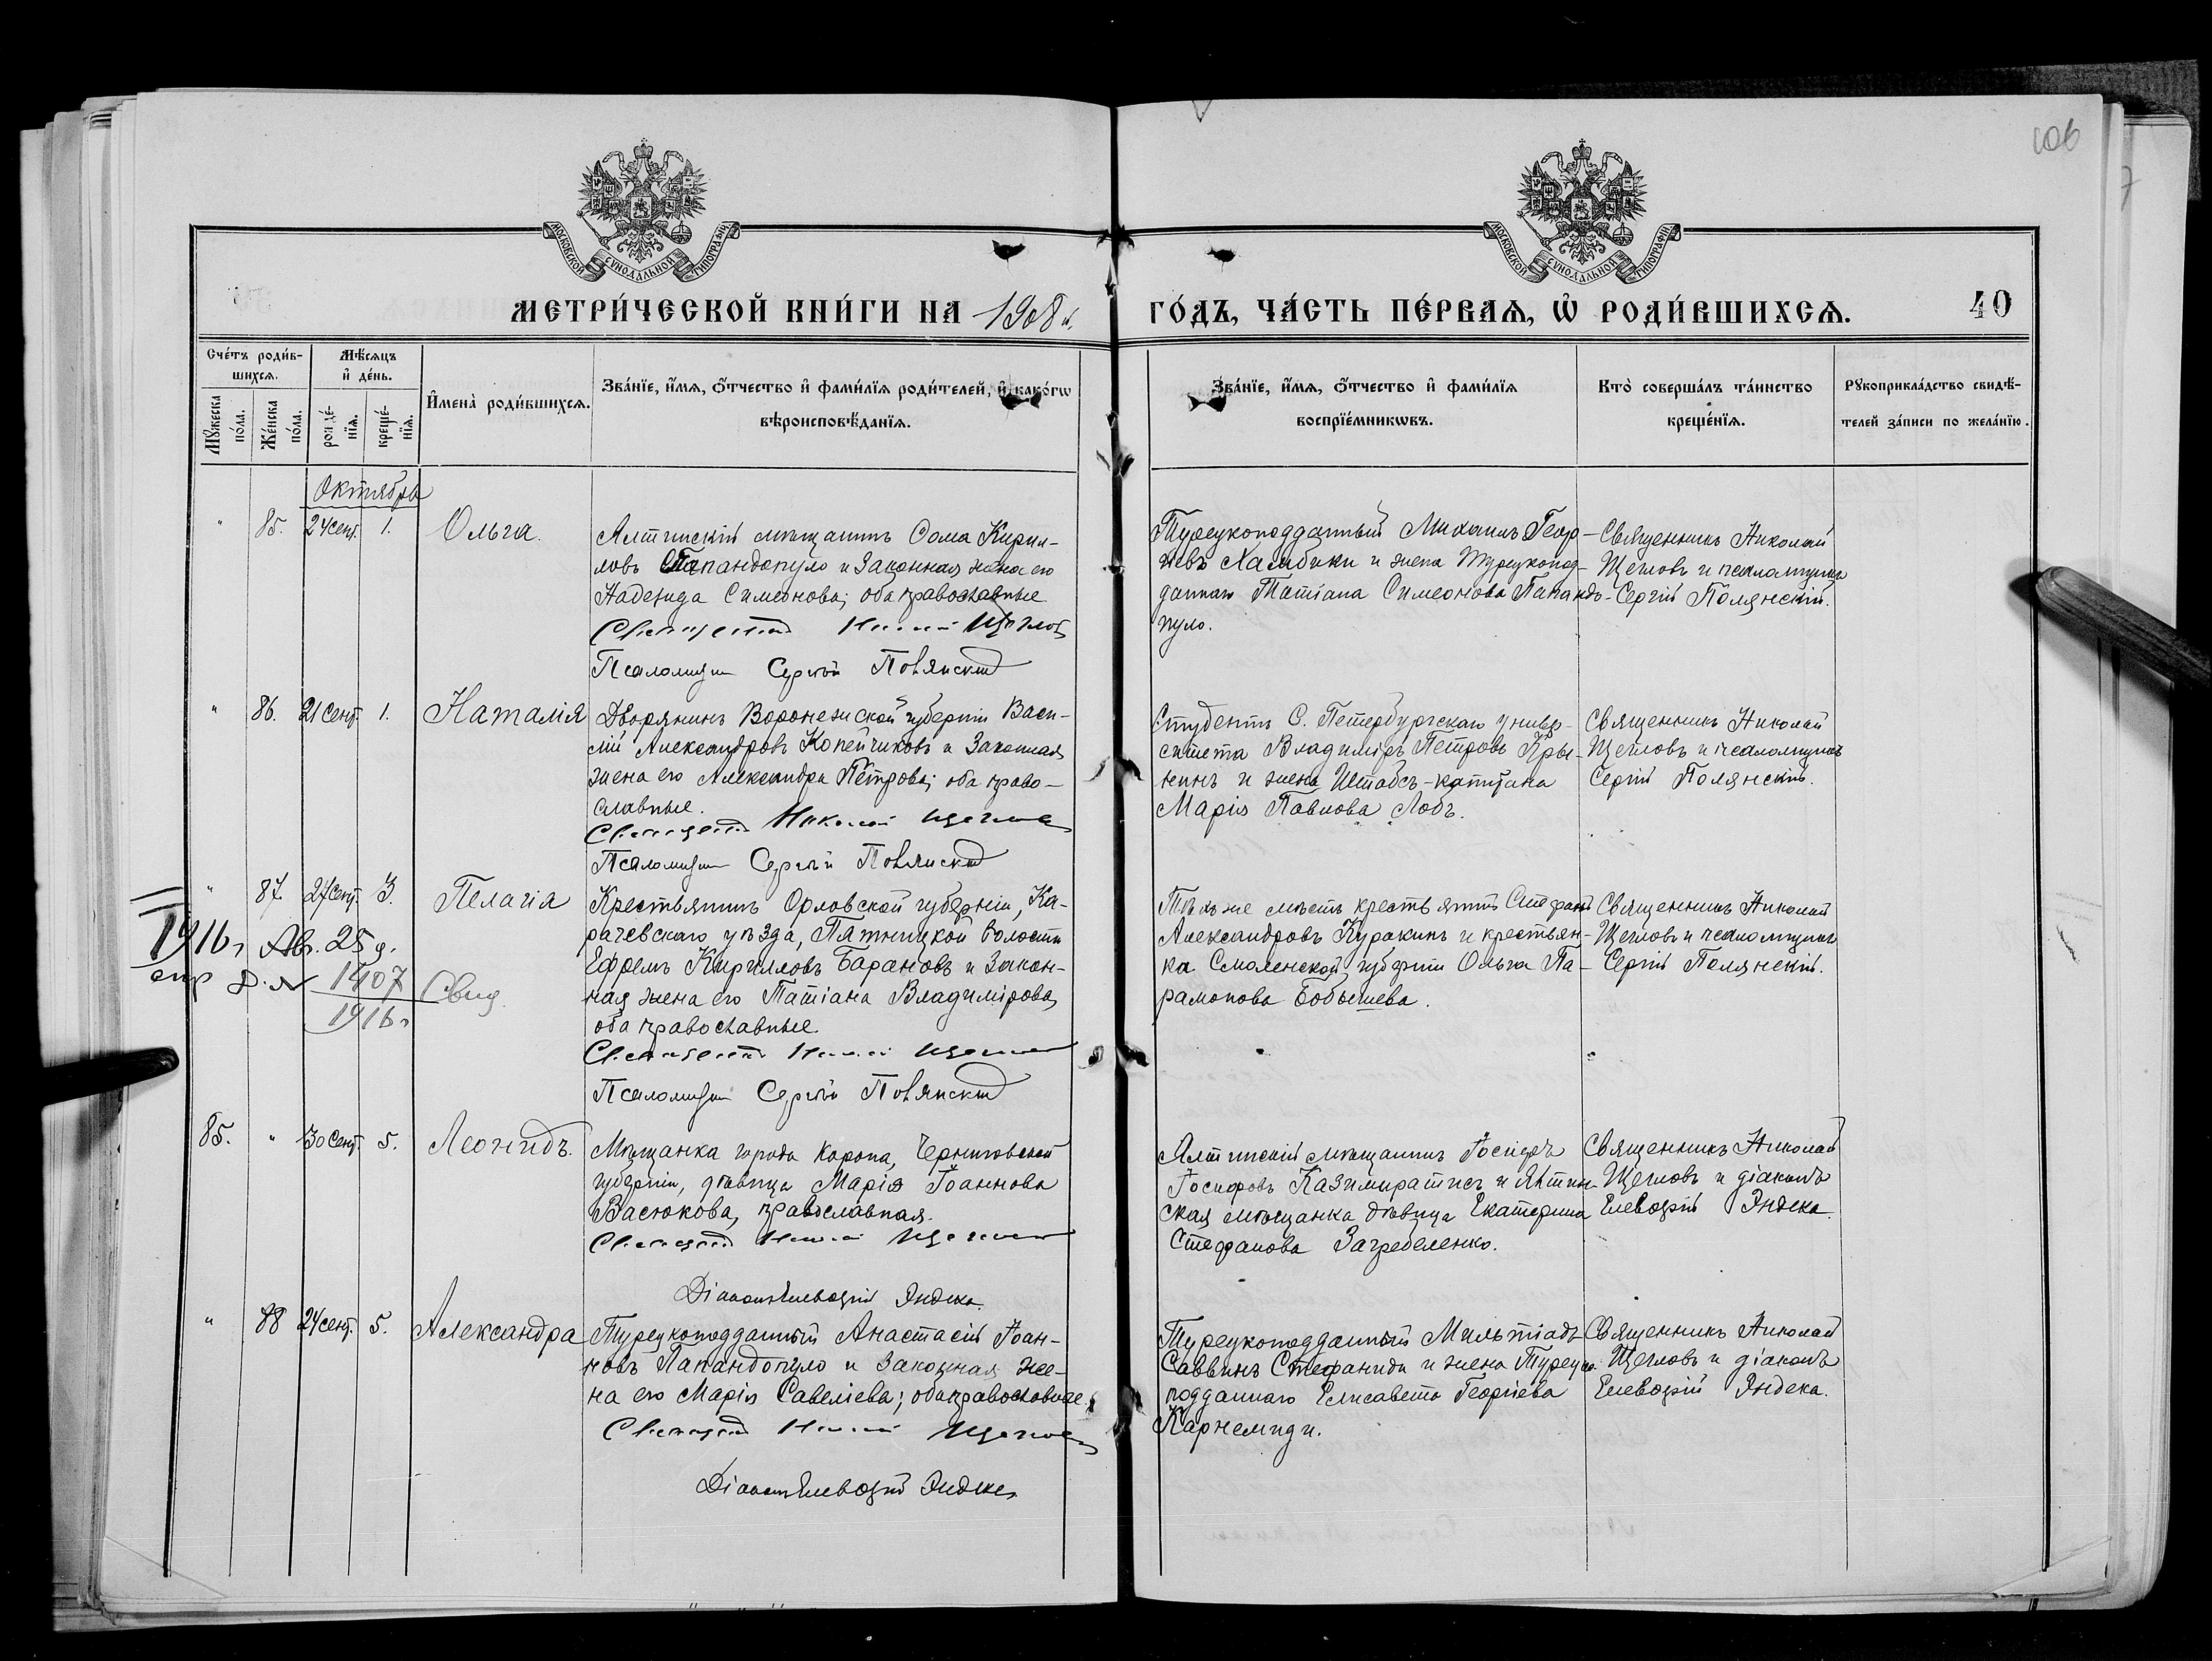 106
МОСКОВСКОЙ СѴНОДАЛЬНОЙ ТИПОГРАФІИ
МОСКОВСКОЙ СѴНОДАЛЬНОЙ ТИПОГРАФІИ
МЕТРИ́ЧЕСКОЙ КНИ́ГИ НА 1908 г.
ГО́ДЪ, ЧА́СТЬ ПЕ́РВАѦ, Ѡ҆ РОДИ́ВШИХСѦ.
40
Сче́тъ роди́в-
шихсѧ.
Мѣ́сѧцъ
и҆ де́нь.
Мꙋ́жеска
по́ла.
Же́нска
по́ла.
рожде́-
нїѧ.
креще́-
нїѧ.
И҆мена̀ роди́вшихсѧ.
Зва́нїе, и҆́мѧ, ѻ҆́тчество и҆ фами́лїѧ роди́телей, и҆ како́гѡ
вѣроисповѣ́данїѧ.
Зва́нїе, и҆́мѧ, ѻ҆́тчество и҆ фами́лїѧ
воспрїе́мникѡвъ.
Кто̀ соверша́лъ та́инство
креще́нїѧ.
Рꙋкоприкла́дство свидѣ́-
телей за́писи по жела́нїю.
Октябрь
" 85. 24 сент. 1. Ольга.
Ялтинскій мѣщанинъ Сава Кирил-
ловъ Папандопуло и законная жена его
Надежда Симеонова; оба православные
Священникъ Николай Щегловъ
Псаломщикъ Сергій Полянскій
Турецкоподданный Михаилъ Геор-
гіевъ Халабаки и жена турецкопод-
даннаго Татіана Симеонова Папандо-
пуло.
Священникъ Николай
Щегловъ и псаломщикъ
Сергій Полянскій.
" 86. 21 сент. 1. Наталія
Дворянинъ Воронежской губерніи Васи-
лій Александровъ Копейчиковъ и законная
жена его Александра Петрова; оба право-
славные.
Священникъ Николай Щегловъ
Псаломщикъ Сергій Полянскій
Студентъ С. Петербургскаго универ-
ситета Владиміръ Петровъ
и жена Штабсъ-капитана
Марія Павлова Лобъ.
Священникъ Николай
Щегловъ и псаломщикъ
Сергій Полянскій.
" 87. 27 сент. 3. Пелагія
Крестьянинъ Орловской губерніи, Ка-
рачевскаго уѣзда, Пятницкой волости
Ефремъ Кирилловъ Барановъ и закон-
ная жена его Татіана Владимірова,
оба православные.
Священникъ Николай Щегловъ
Псаломщикъ Сергій Полянскій
1916 г Ав. 25 д.
1407
1916 г
Свид.
Тѣхъ же мѣстъ крестьянинъ Стефанъ
Александровъ Куракинъ и крестьян-
ка Смоленской губерніи Ольга Па-
рамонова Бобышева.
Священникъ Николай
Щегловъ и псаломщикъ
Сергій Полянскій.
85. " 30 сент. 5. Леонидъ.
Мѣщанка города Коропа, Черниговской
губерніи, дѣвица Марія Іоаннова
Васюкова, православная.
Священникъ Николай Щегловъ
Діаконъ Елевѳерій Яндека.
Ялтинскій мѣщанинъ Іосифъ
Іосифовъ Казимиратисъ и Ялтин-
ская мѣщанка дѣвица Екатерина
Стефанова Загребеленко.
Священникъ Николай
Щегловъ и діаконъ
Елевѳерій Яндека.
" 88 24 сент. 5. Александра
Турецкоподданный Анастасій Іоан-
новъ Папандопуло и законная же-
на его Марія Савеліева; оба православные.
Священникъ Николай Щегловъ
Діаконъ Елевѳерій Яндека
Турецкоподданный Мильтіадъ
Саввинъ Стефаниди и жена Турецко-
подданнаго Елисавета Георгіева
Карнемиди.
Священникъ Николай
Щегловъ и діаконъ
Елевѳерій Яндека.